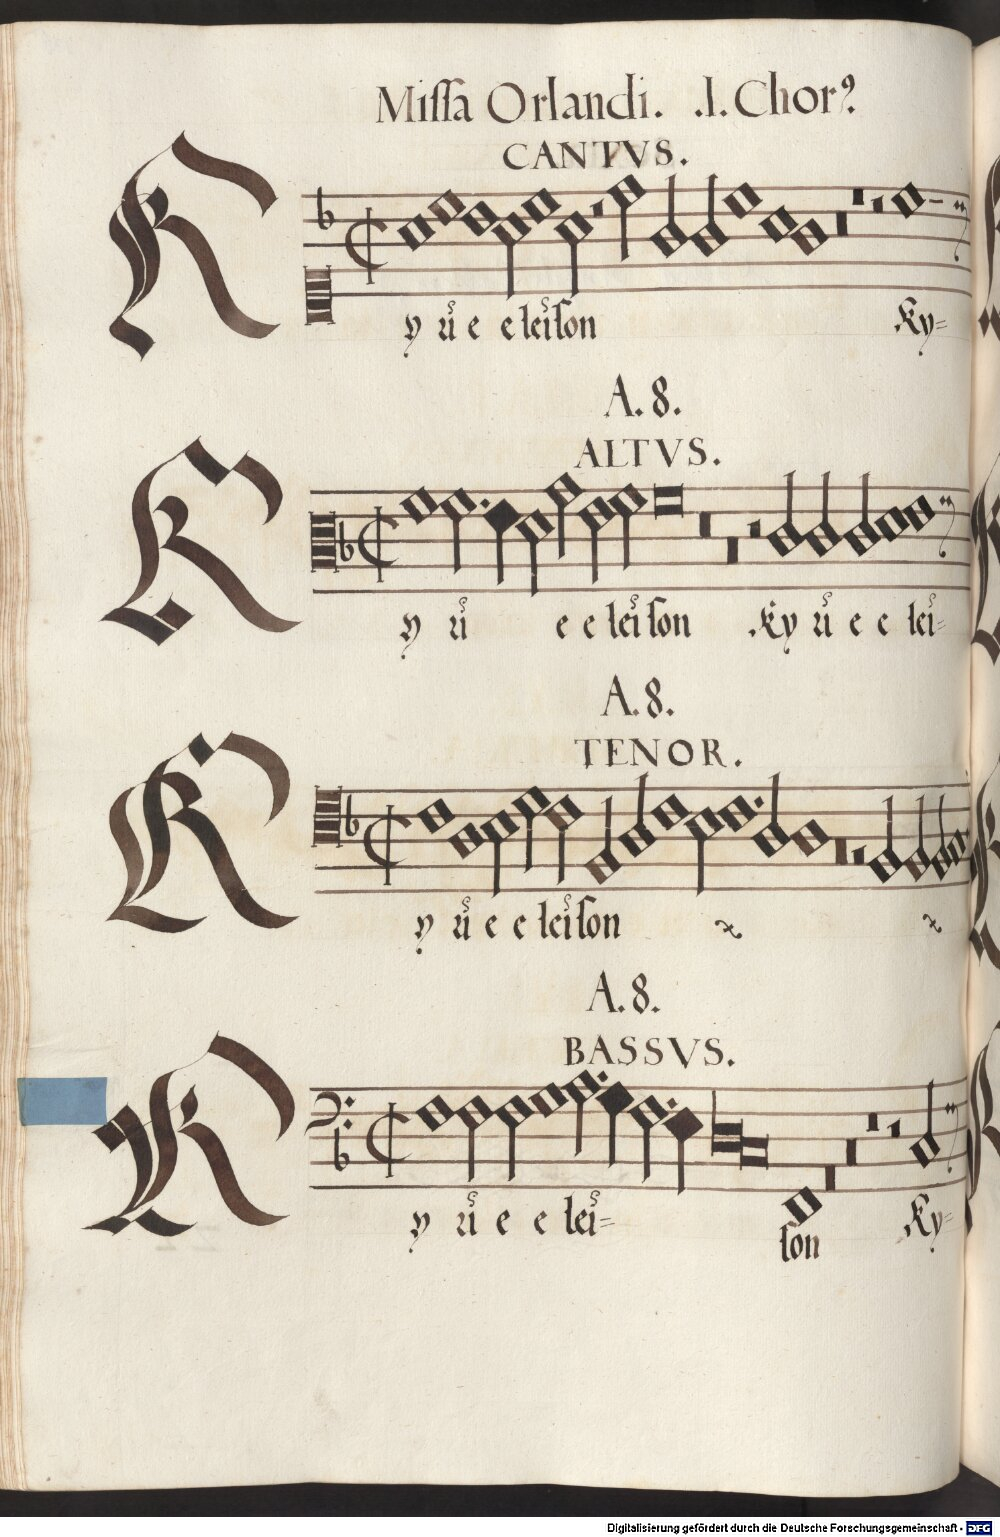 Missa Orlandi. .I. Chorꝰ
CANTVS.
K
y ri e e leison Ky=
A. 8.
ALTVS.
K
y ri e e leison Ky ri e e lei=
A. 8.
TENOR.
K
y ri e e leison
A. 8.
BASSVS.
K
y ri e e lei=
son Ky=
Digitalisierung gefördert durch die Deutsche Forschungsgemeinschaft - DFG